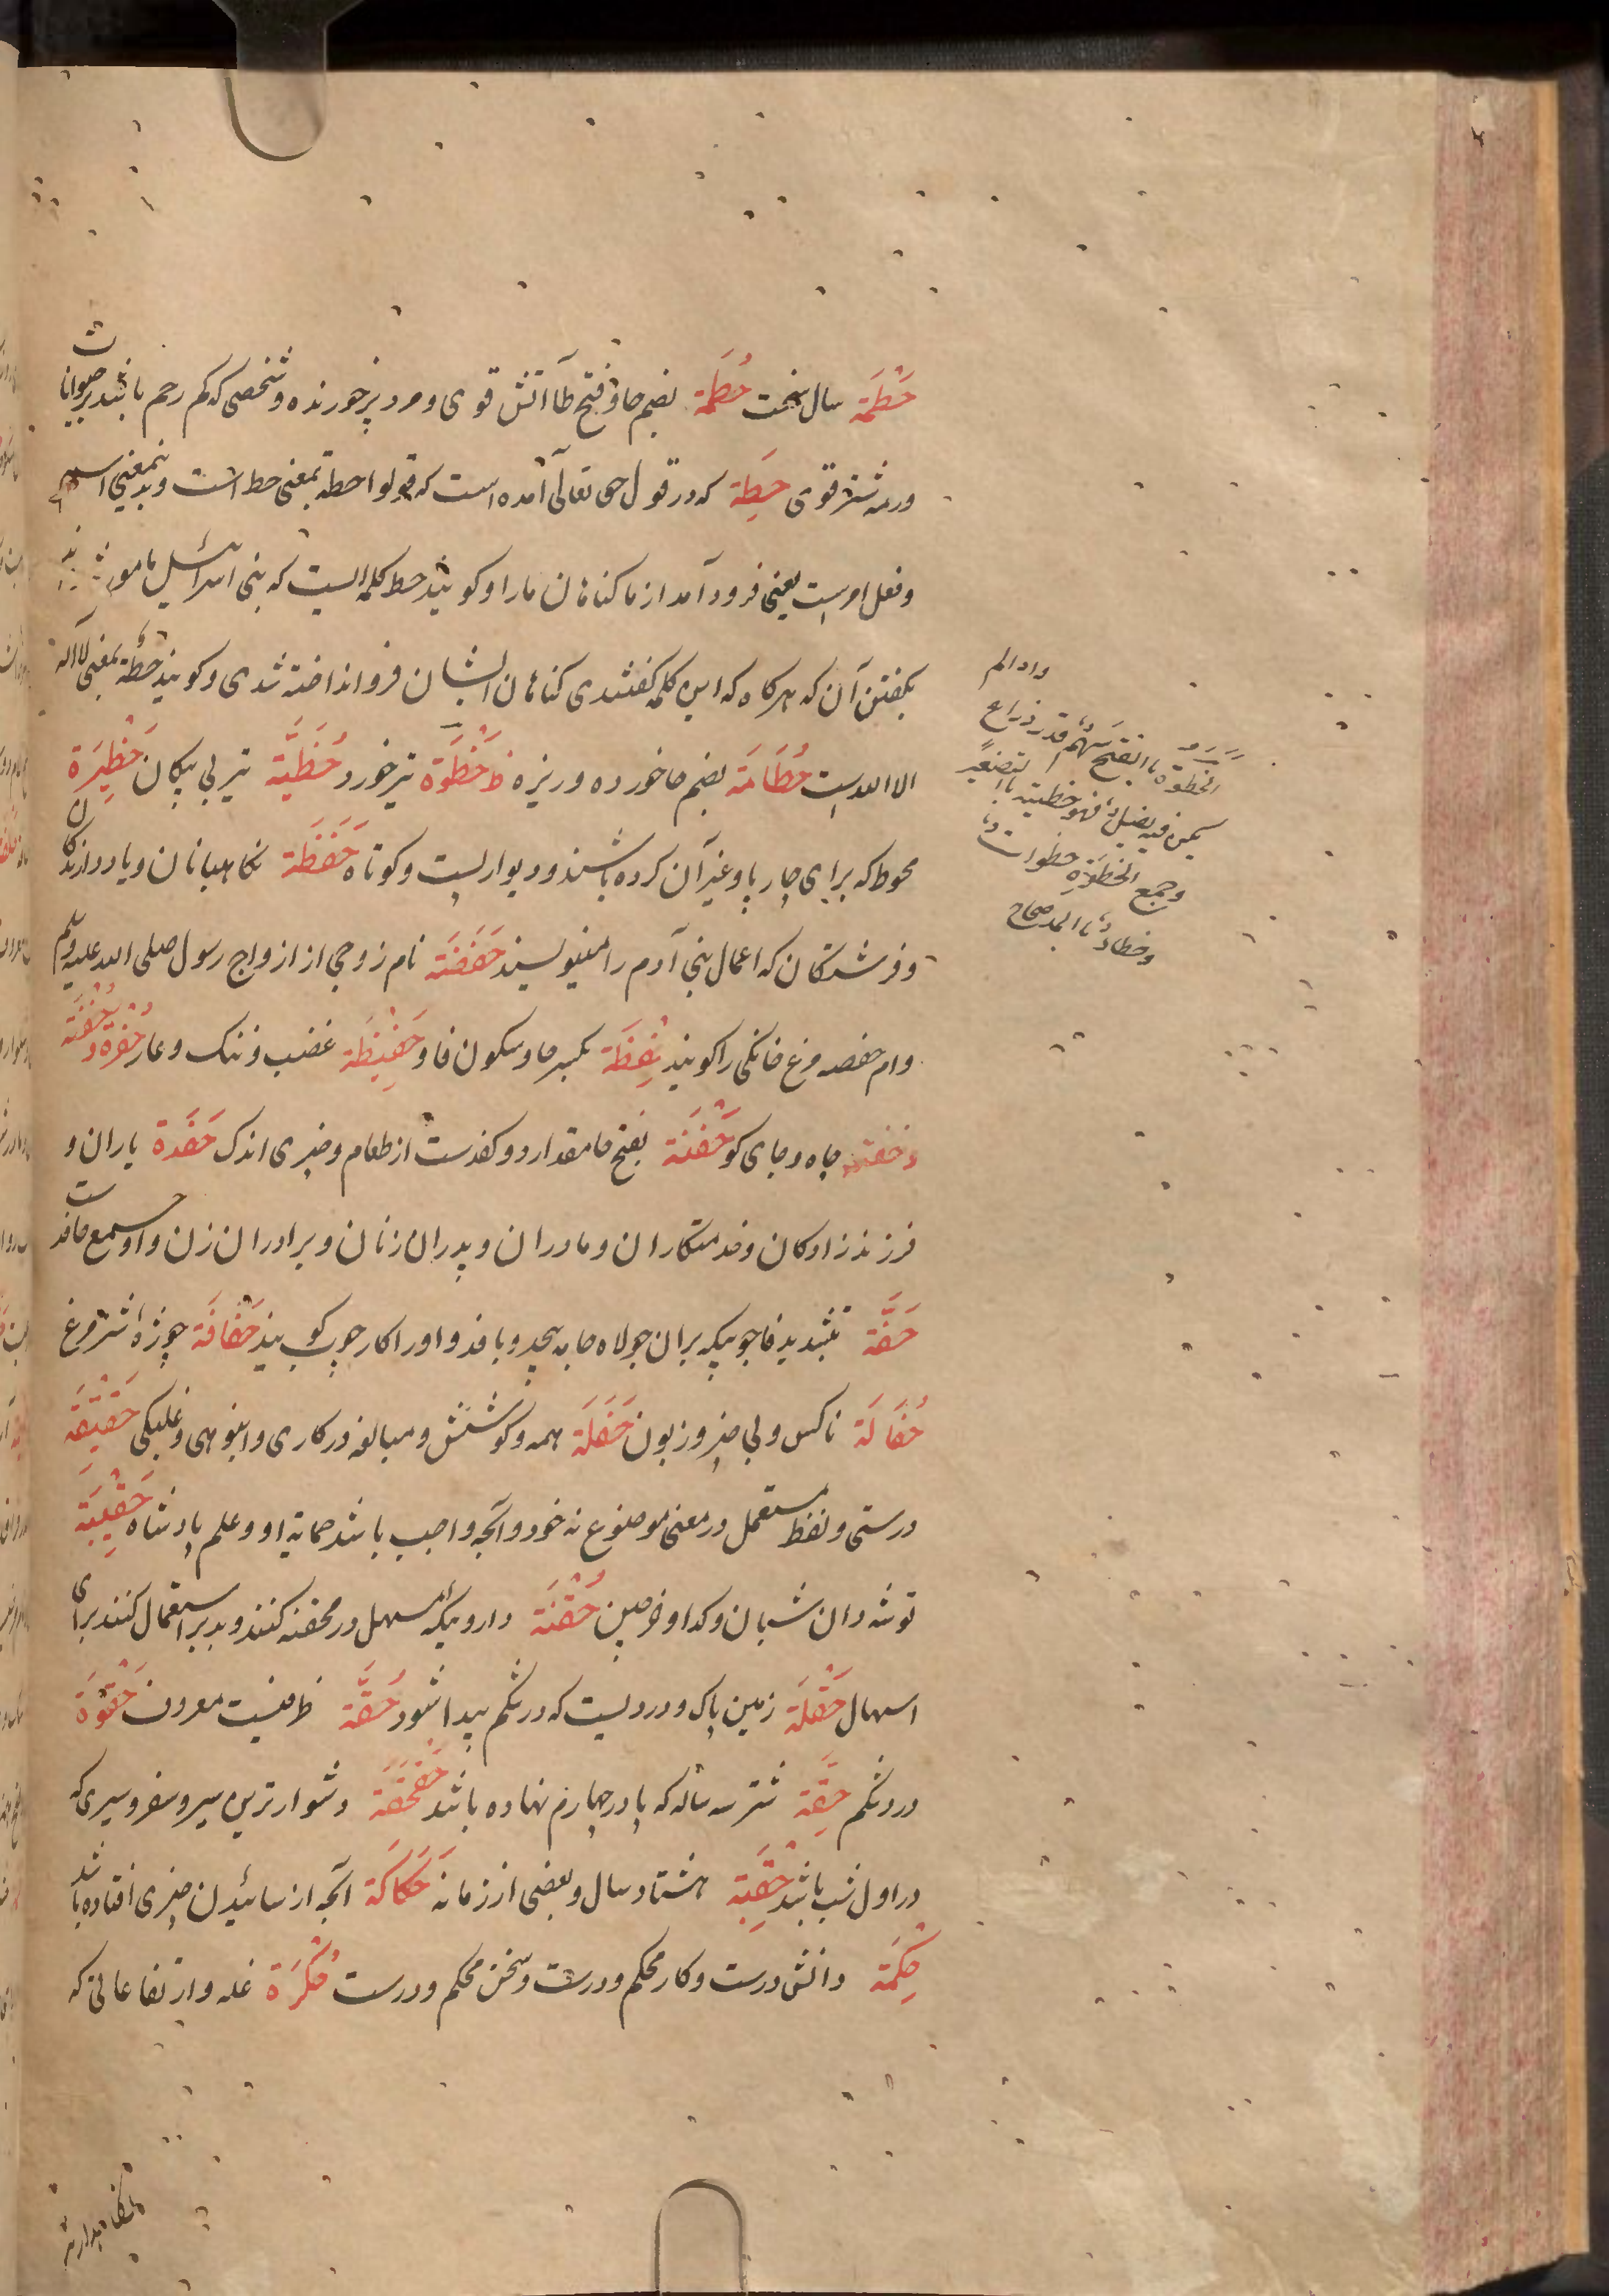 حَطْمَة سال سخت حُطَمَة بضم حا و فتح طا آتش قوی و مرد پرخورنده و شخصی که کم رحم باشد بر حیوانات
ورمه شتر قوی حِطَة که در قول حق تعالی آمده است که قولوا حطة بمعنی حط است و بدینمعنی اسم
و فعل امرست یعنی فرود آمد از ما کناهان ما را و کویند حط کلمه ایست که بنی اسرائیل مامور شدند
بکفتن آن که هرکاه که این کلمه کفتندی کناهان ایشان فرو انداخته شدی و کویند حطة بمعنی لا اله
الا الله است حُطَامَة بضم حا خورده و ریزه حَظْوَة تیر خورد حُظَیَّة تیر بی پیکان حَظِیرَة
محوط که برای چارپا و غیر آن کرده باشند و دیوار پست و کوتاه حَفَظَة نکاهبانان و یاد دارندکان
و فرشتکان که اعمال بنی آدم را مینویسند حَفَصَة نام زوجی از ازواج رسول صلی الله علیه وسلم
و ام حفصه مرغ خانکی را کویند حِفْظَة بکسر حا و سکون فا و حَفِیظَة غضب و ننک و عار حُفْرَة و حُفْنَة
چاه و جای کو حَفْنَة بفتح حا مقدار دو کف دست از طعام و چیزی اندک حَفَدَة یاران و
فرزند زادکان و خدمتکاران و مادران و پدران زنان و برادران زن و او جمع حافد ست
حَفَّة بتشدید فا چوبیکه بران جولاه جامه پیچد و بافد و او را کارچوب کویند حَفَافَة
حُفَالَة ناکس و بی چیز و زبون حَفَلَة همه و کوشش و مبالغه در کاری و انبوهی و غلبکی حَقِیقَة
درستی و لفظ مستعمل در معنی موضوع له خود و آنچه واجب باشد حمایة او و علم پادشاه حَقِیبَة
توشه دان شبان و کدا و خرجین حُقْنَة دارویکه مسهل در محقنه کنند و بدبر استعمال کنند برای
اسهال حَقْلَة زمین پاک و دردیست که در شکم پیدا شود حُقَّة ظرفیست معروف حَقْوَة
درد شکم حِقَّة شتر سه ساله که پا در چهارم نهاده باشد حَقْحَقَة دشوارترین سیر و سفر و سیری که
در اول شب باشد حِقْبَة هشتاد سال و بعضی از زمانه حَکَاکَة آنچه از سائیدن چیزی افتاده باشد
حِکْمَة دانش درست و کار محکم و درست و سخن محکم و درست حُکْرَة غله و ارتفاعاتی که
الحظوة بالفتح سهم قدر ذراع
وجمع الحظوة حظوات
وحظاء بالمد صحاح